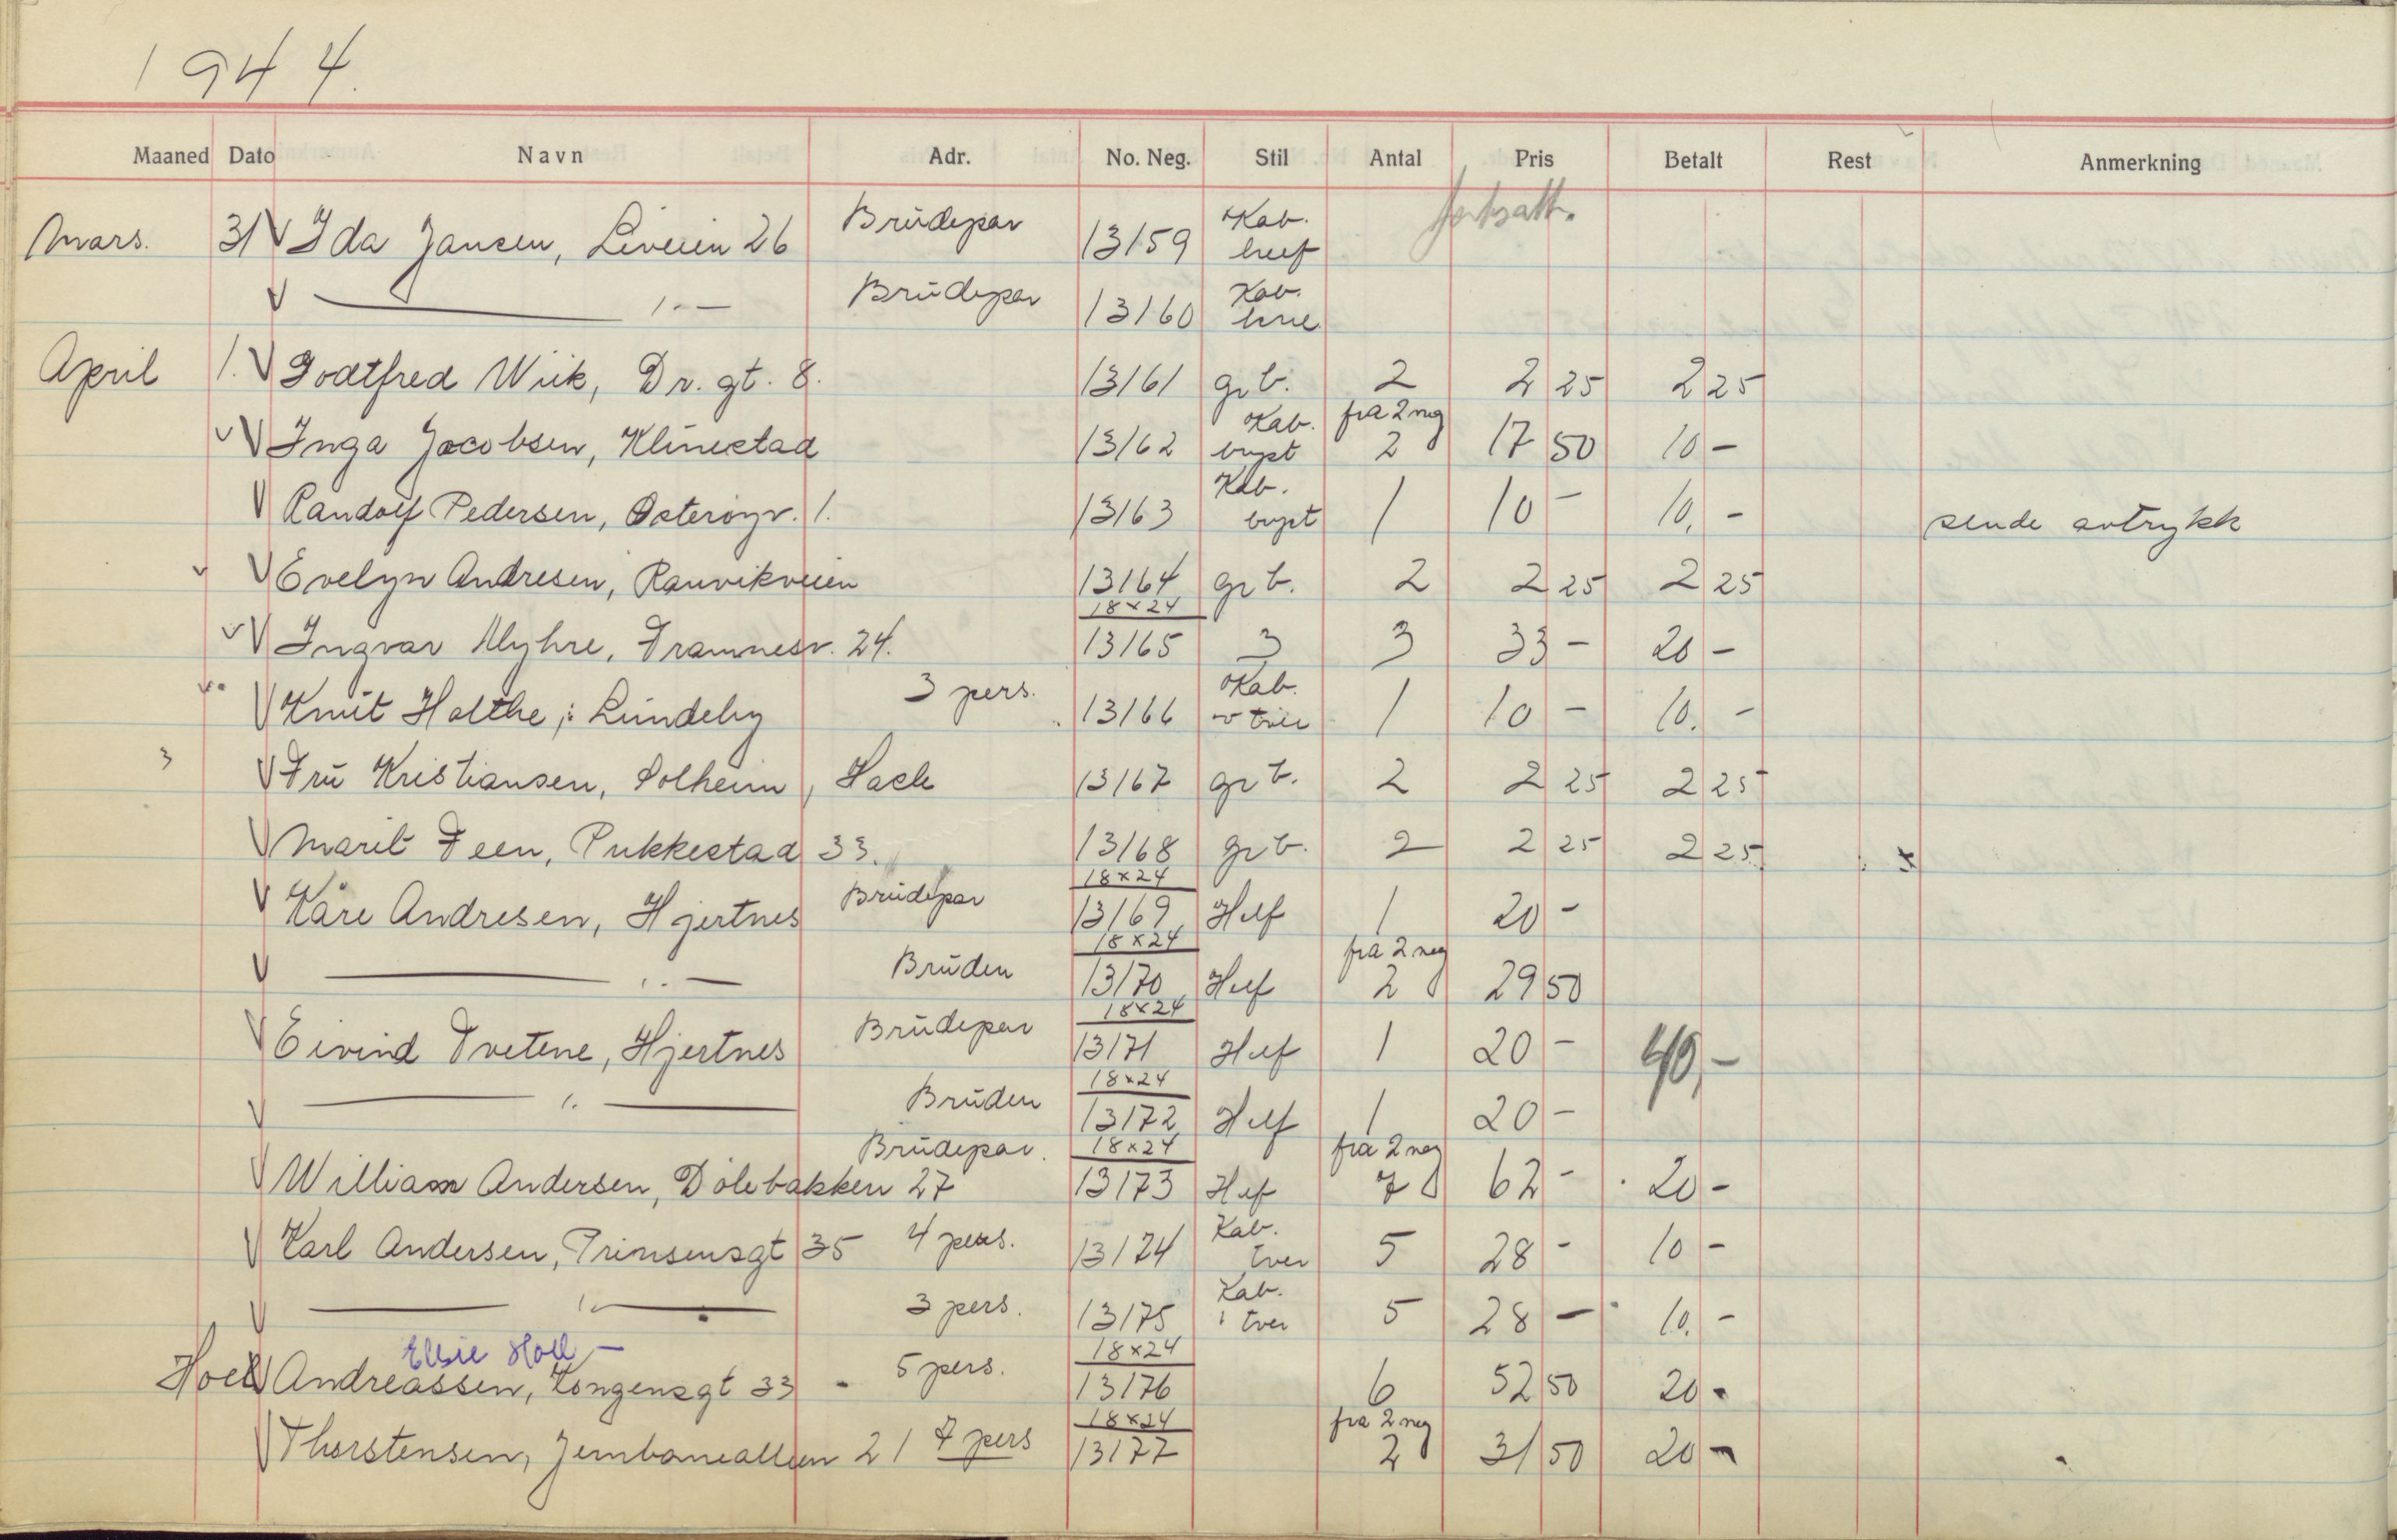 1944.
Maaned Dato Navn Adr. No. Neg. Stil Antal Pris Betalt Rest Anmerkning
fortsatt.
Mars. 31 V Ida Jansen, Liveien 26 Brudepar 13159 Kab. heef
V — " — Brudepar 13160 Kab.
April 1. V Godtfred Wiik, Dr. gt. 8. 13161 gr b. 2 2 25 2 25
V V Inga Jacobsen, Klinestad 13162 Kab. bryst fra 2 neg 2 17 50 10 -
V Randolf Pedersen, Østerøyv. 1. 13163 Kab. bryst 1 10 - 10. - sende avtrykk
V V Evelyn Andresen, Ranvikveien 13164 gr b. 2 2 25 2 25
V V Ingvar Myhre, Framnesv. 24. 18x24 13165 3 3 33 - 20 -
V V Knut Holthe, Lundeby 3 pers. 13166 Kab. 1 10 - 10. -
3 V Fru Kristiansen, Solheim, Hasle 13167 gr b. 2 2 25 2 25
V Marit Feen, Pukkestad 33. 13168 gr b. 2 2 25 2 25 x
V Kåre Andresen, Hjertnes Brudepar 18x24 13169 Helf 1 20 -
V — " — Bruden 18x24 13170 Helf fra 2 neg 2 29 50
V Eivind Tvetene, Hjertnes Brudepar 18x24 13171 Helf 1 20 - 40,-
V — " — Bruden 18x24 13172 Helf 1 20 -
V William Andersen, Dølebakken 27 Brudepar. 18x24 13173 Helf fra 2 neg 7 62 - 20 -
V Karl Andersen, Prinsensgt 35 4 pers. 13174 Kab. tver 5 28 - 10 -
V — " — 3 pers. 13175 Kab. tver 5 28 - 10. -
Hoel
V Andreassen, Kongensgt 33 - 5 pers. 18x24 13176 6 52 50 20 -
V Thorstensen, Jernbanealleen 21 7 pers 18x24 13177 fra 2 neg 2 31 50 20 -